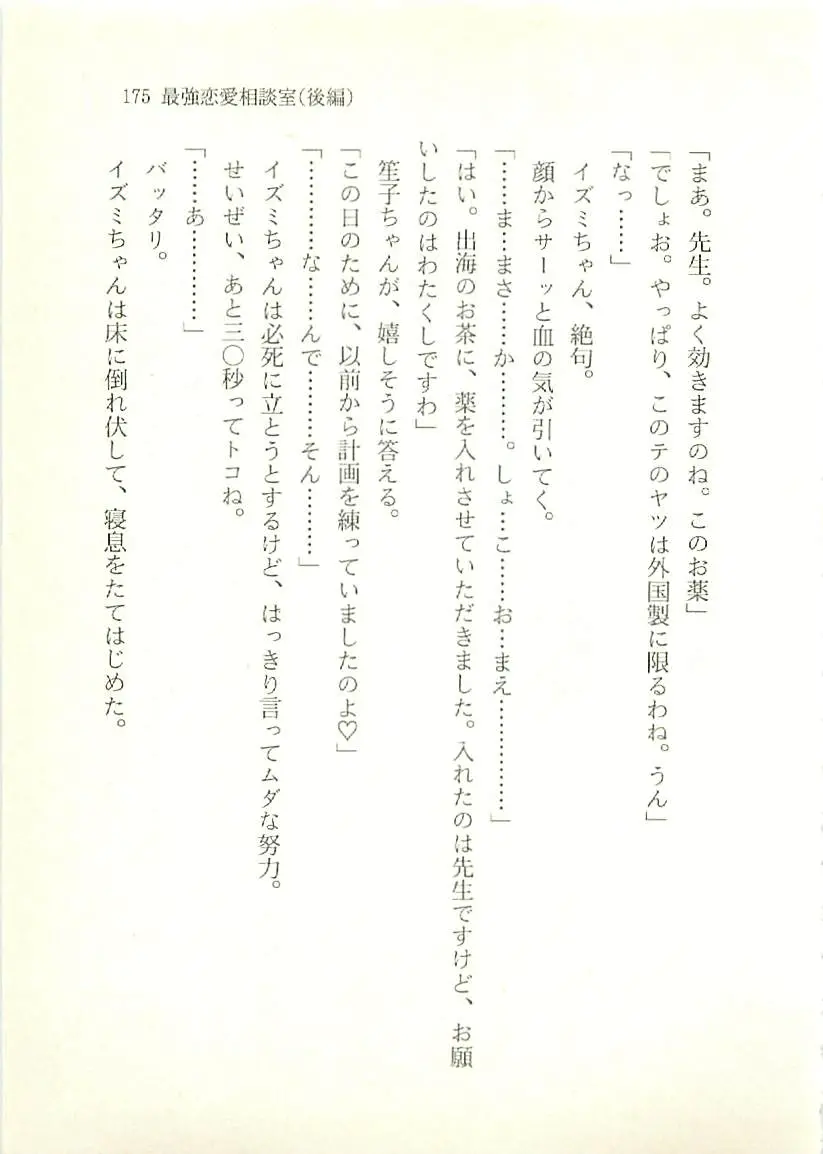 175 最強恋愛相談室(後編)
「まあ。先生。よく効きますのね。このお薬」
「でしょお。やっぱり、このテのヤツは外国製に限るわね。うん」
「なっ……」
イズミちゃん、絶句。
顔からサーッと血の気が引いてく。
「……ま…まさ……か………。しょ…こ……お…まえ……………」
「はい。出海のお茶に、薬を入れさせていただきました。入れたのは先生ですけど、お願
いしたのはわたくしですわ」
笙子ちゃんが、嬉しそうに答える。
「この日のために、以前から計画を練っていましたのよ♡」
「…………な……んで………そん…………」
イズミちゃんは必死に立とうとするけど、はっきり言ってムダな努力。
せいぜい、あと三〇秒ってトコね。
「……あ…………」
バッタリ。
イズミちゃんは床に倒れ伏して、寝息をたてはじめた。